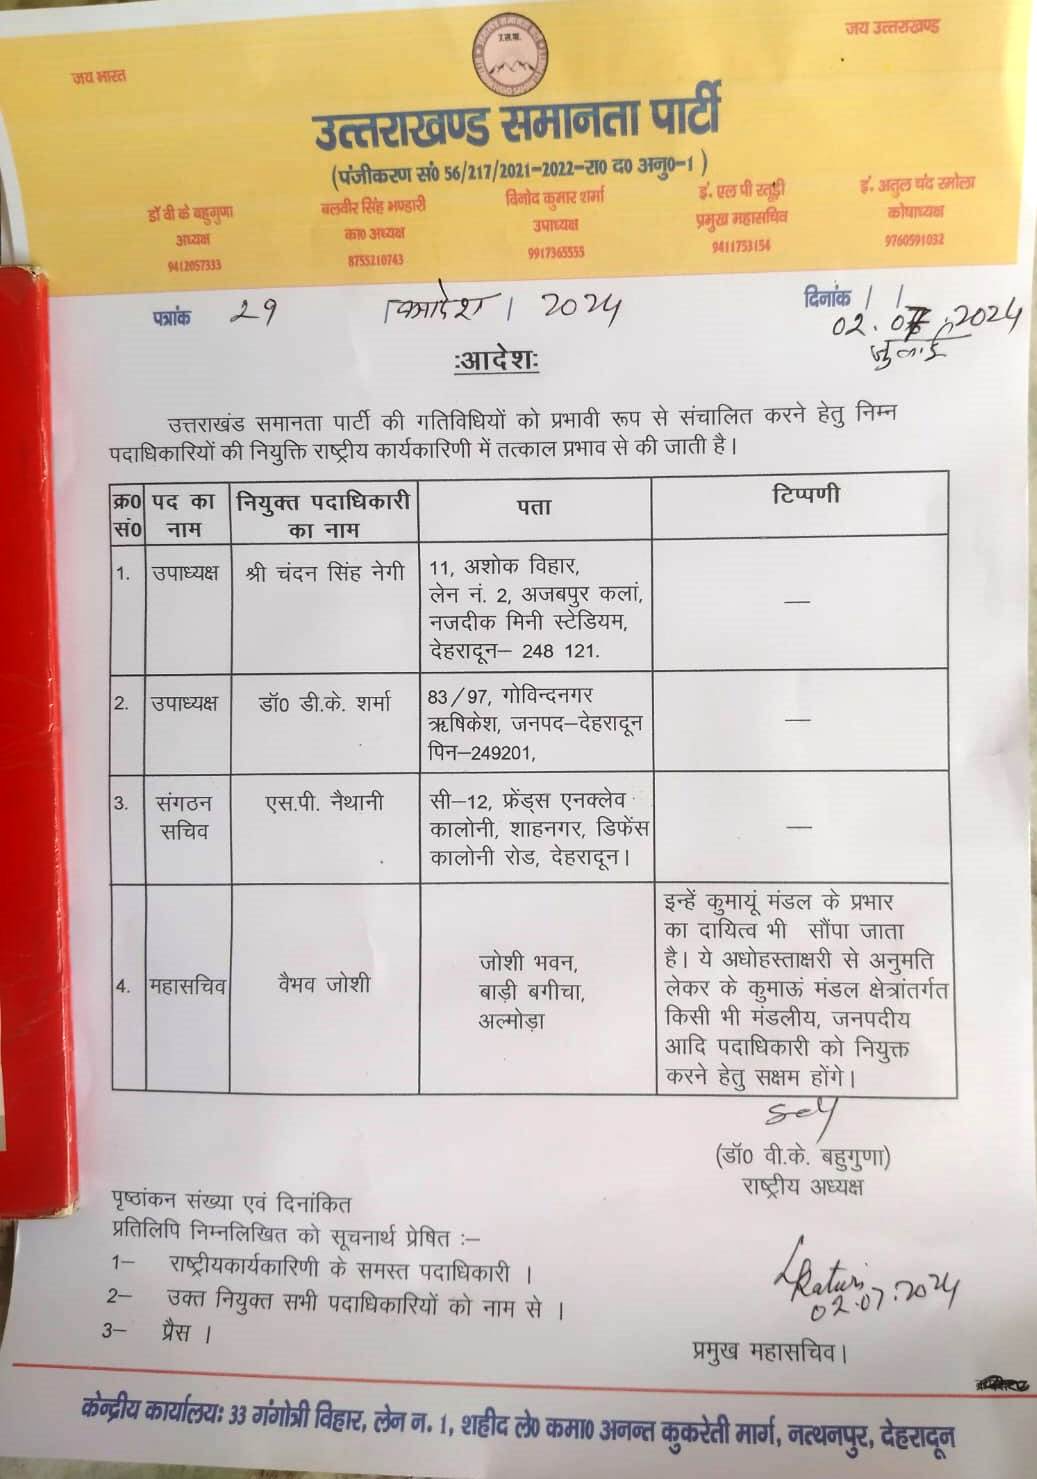 जय भारत
जय उत्तराखण्ड
उ.स.पा.
उत्तराखण्ड समानता पार्टी
(पंजीकरण सं० 56/217/2021-2022-रा० द० अनु०-1 )
डॉ वी के बहुगुणा
अध्यक्ष
9412057333
बलवीर सिंह भण्डारी
का० अध्यक्ष
8755210743
विनोद कुमार शर्मा
उपाध्यक्ष
9917365555
इं. एल पी रतूड़ी
प्रमुख महासचिव
9411753154
इं. अतुल चंद रमोला
कोषाध्यक्ष
9760591032
पत्रांक 29 / 2024
दिनांक / /
02.07.2024
जुलाई
:आदेश:
उत्तराखंड समानता पार्टी की गतिविधियों को प्रभावी रूप से संचालित करने हेतु निम्न
पदाधिकारियों की नियुक्ति राष्ट्रीय कार्यकारिणी में तत्काल प्रभाव से की जाती है।
क्र० सं० पद का नाम नियुक्त पदाधिकारी का नाम पता टिप्पणी
1. उपाध्यक्ष श्री चंदन सिंह नेगी 11, अशोक विहार,
लेन नं. 2, अजबपुर कलां,
नजदीक मिनी स्टेडियम,
देहरादून– 248 121.
—
2. उपाध्यक्ष डॉ0 डी.के. शर्मा 83/97, गोविन्दनगर
ऋषिकेश, जनपद–देहरादून
पिन–249201,
—
3. संगठन सचिव एस.पी. नैथानी सी–12, फ्रेंड्स एनक्लेव
कालोनी, शाहनगर, डिफेंस
कालोनी रोड, देहरादून।
—
4. महासचिव वैभव जोशी जोशी भवन,
बाड़ी बगीचा,
अल्मोड़ा
इन्हें कुमायूं मंडल के प्रभार
का दायित्व भी सौंपा जाता
है। ये अधोहस्ताक्षरी से अनुमति
लेकर के कुमाऊं मंडल क्षेत्रांतर्गत
किसी भी मंडलीय, जनपदीय
आदि पदाधिकारी को नियुक्त
करने हेतु सक्षम होंगे।
(डॉ0 वी.के. बहुगुणा)
राष्ट्रीय अध्यक्ष
पृष्ठांकन संख्या एवं दिनांकित
प्रतिलिपि निम्नलिखित को सूचनार्थ प्रेषित :–
1– राष्ट्रीयकार्यकारिणी के समस्त पदाधिकारी ।
2– उक्त नियुक्त सभी पदाधिकारियों को नाम से ।
3– प्रैस ।
02.07.2024
प्रमुख महासचिव।
केन्द्रीय कार्यालय: 33 गंगोत्री विहार, लेन न. 1, शहीद ले० कमा० अनन्त कुकरेती मार्ग, नत्थनपुर, देहरादून